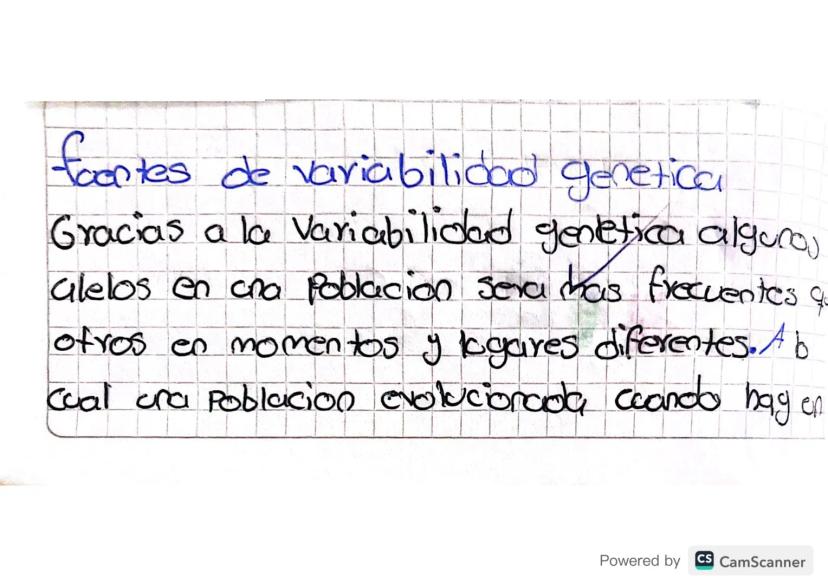 fuentes de variabilidad genetica
Gracias a la Variabilidad genetica algunos
alelos en una Poblacion sera mas frecuentes
otros en momentos y lugares diferentes. A lo
cual una Poblacion evolucionada cuando hay en
Powered by CS CamScanner